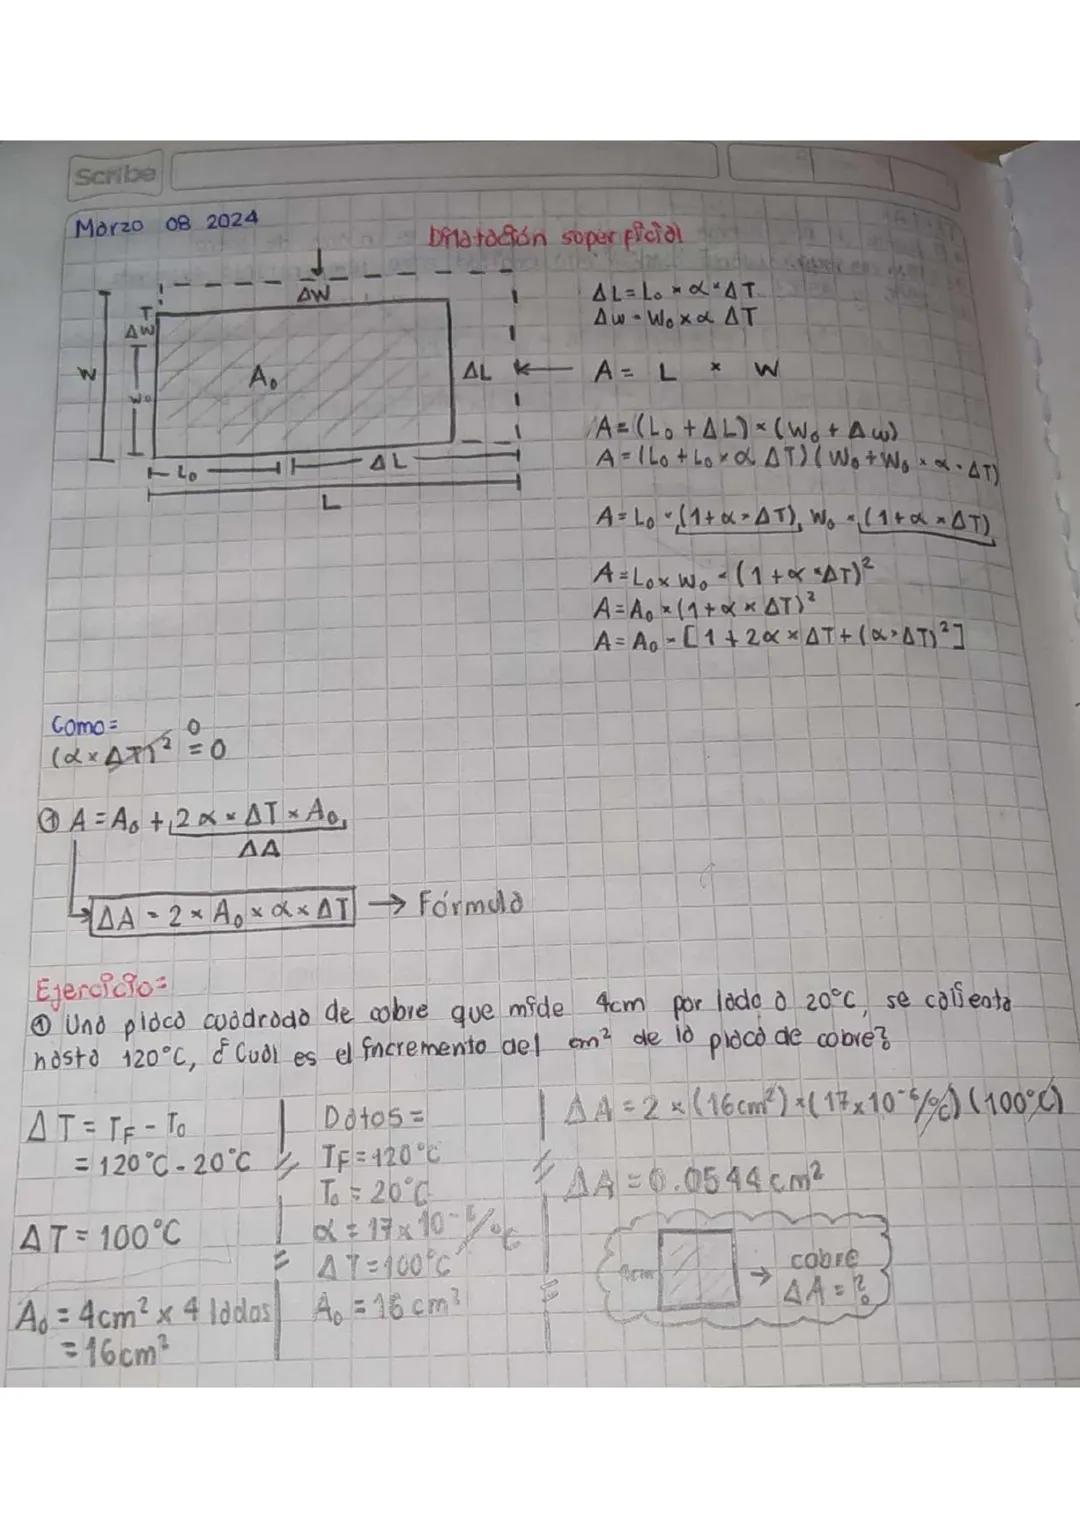 Scribe
Marzo 08 2024
Dilatación superficial
ΔW
T
ΔW
W
W₀
A₀
ΔL
L₀
ΔL
L
ΔL = L₀ × α × ΔT
Δw = W₀ × α ΔT
A = L × W
A = (L₀ + ΔL) × (W₀ + Δw)
A = (L₀ + L₀ × α ΔT) (W₀ + W₀ × α · ΔT)
A = L₀ × (1 + α × ΔT), W₀ × (1 + α × ΔT)
A = L₀ × W₀ × (1 + α × ΔT)²
A = A₀ × (1 + α × ΔT)²
A = A₀ × [1 + 2α × ΔT + (α × ΔT)²]
Como =
0
(α × ΔT)² = 0
① A = A₀ + 2α × ΔT × A₀
ΔA
ΔA = 2 × A₀ × α × ΔT → Fórmula
Ejercicio =
① Una placa cuadrada de cobre que mide 4cm por lado a 20°C, se calienta
hasta 120°C, ¿Cuál es el incremento del cm² de la placa de cobre?
ΔT = TF - T₀
= 120°C - 20°C
ΔT = 100°C
A₀ = 4cm² × 4 lados
= 16cm²
Datos =
TF = 120°C
T₀ = 20°C
α = 17 × 10⁻⁶/°C
ΔT = 100°C
A₀ = 16 cm²
ΔA = 2 × (16cm²) × (17 × 10⁻⁶/°C) (100°C)
ΔA = 0.0544 cm²
4cm
→ cobre
ΔA = ?